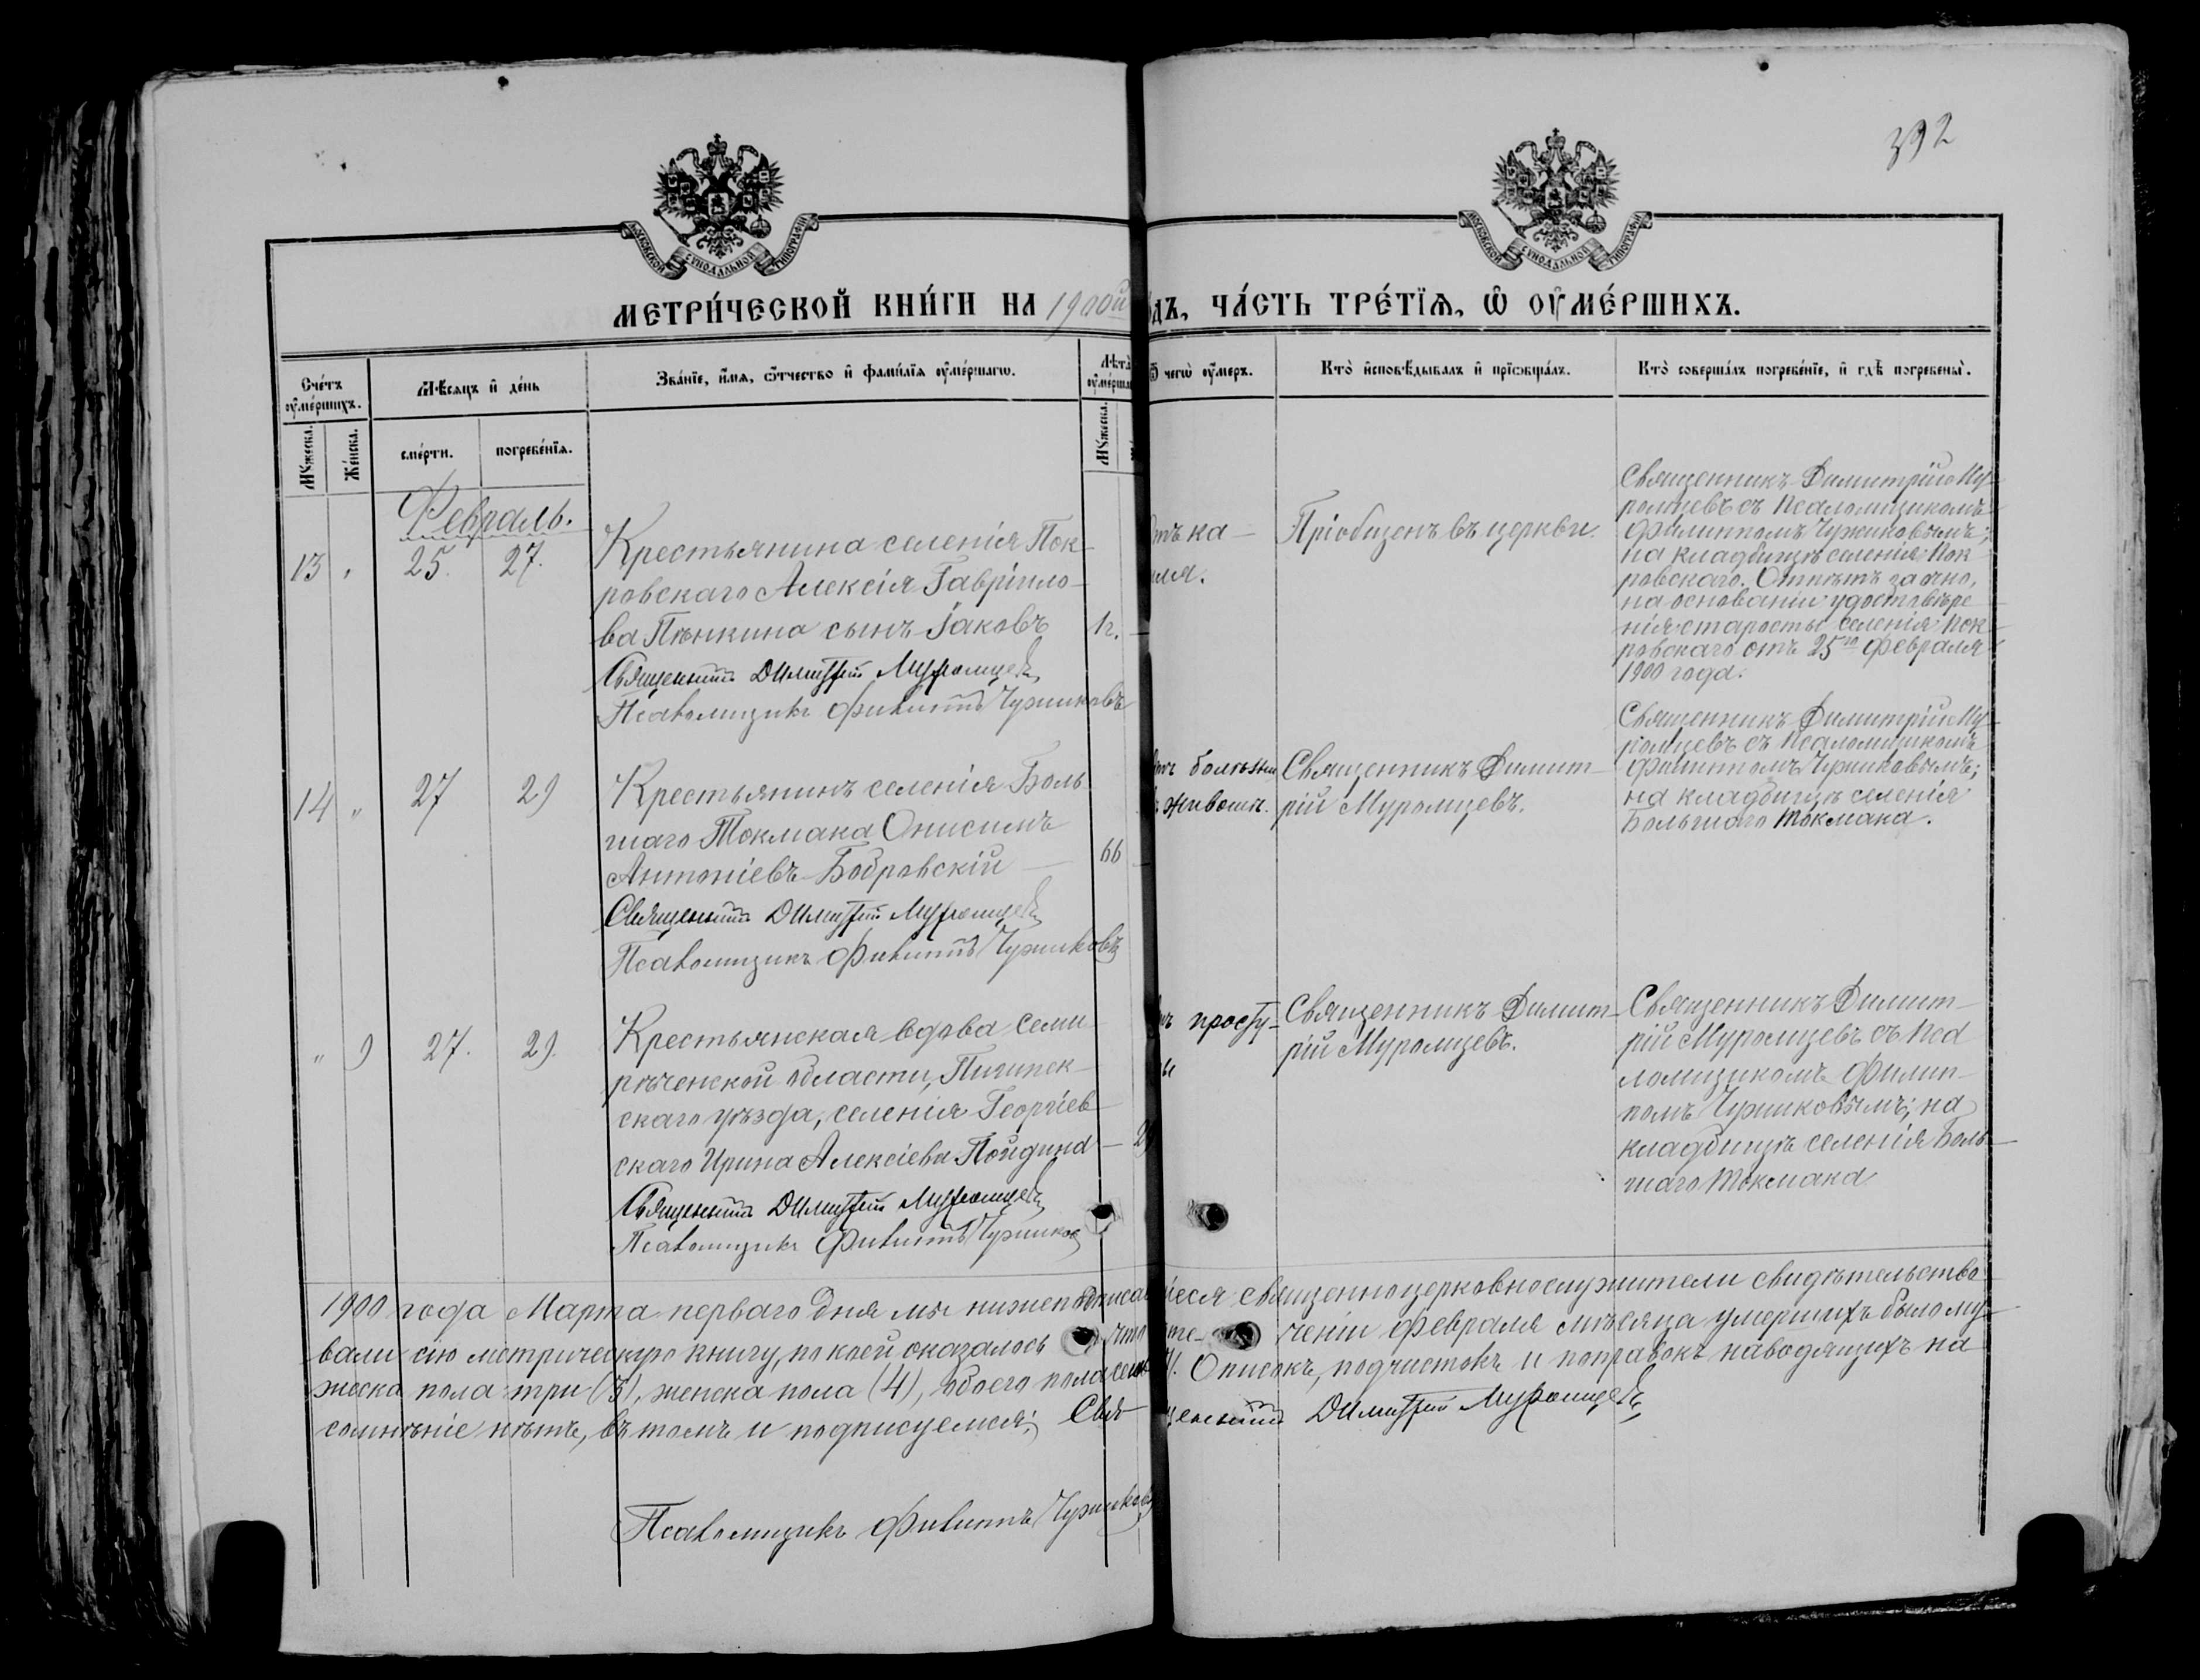 392
МОСКОВСКОЙ СѴНОДАЛЬНОЙ ТИПОГРАФІИ
МОСКОВСКОЙ СѴНОДАЛЬНОЙ ТИПОГРАФІИ
МЕТРИ́ЧЕСКОЙ КНИ́ГИ НА 1900й
дъ, ЧА́СТЬ ТРЕ́ТІѦ, Ѽ ОУ҆МЕ́РШИХЪ.
Сче́тъ оу҆ме́ршихъ.
Мѣсяцъ и҆ де́нь
Зва́нїе, и҆́мѧ, ѻ҆́тчество и҆ фамилїѧ оу҆ме́ршагѡ.
Лѣта̀
оу҆мерша
Ѿ чегѡ̀ оу҆́меръ.
Кто̀ и҆сповѣ́дывалъ и҆ прїѡбща́лъ.
Кто̀ соверша́лъ погребе́нїе, и҆ гдѣ̀ погребены̀.
Мꙋ́жеска.
Же́нска.
сме́рти.
погребе́нїѧ.
Мꙋ́жеска.
Февраль.
13 " 25. 27.
Крестьянина селенія Пок-
ровскаго Алексія Гавріило-
ва Пѣнкина сынъ Іаковъ
Священникъ Димитрій Муромцевъ
Псаломщикъ Филиппъ Чуриковъ
ка-
ля.
Пріобщенъ въ церкви.
Священникъ Димитрій Му-
ромцевъ съ Псаломщикомъ
Филиппомъ Чуриковымъ;
на кладбищѣ селенія Пок-
ровскаго. Отпѣтъ заочно,
на основаніи удостовѣре-
нія старосты селенія Пок-
ровскаго отъ 25го Февраля
1900 года.
14 " 27 29
Крестьянинъ селенія Боль
шаго Токмака Онисимъ
Антоніевъ Бобровскій
66
Священникъ Димитрій Муромцевъ
Псаломщикъ Филиппъ Чуриковъ
болѣзни
животѣ.
Священникъ Димит-
рій Муромцевъ.
Священникъ Димитрій Му-
ромцевъ съ Псаломщикомъ
Филиппомъ Чуриковымъ;
на кладбищѣ селенія
Большаго Токмака.
" 9 27. 29.
Крестьянская вдова Семи-
рѣченской области, Пишпек-
скаго уѣзда, селенія Георгіев-
скаго Ирина Алексіева Пойдина
Священникъ Димитрій Муромцевъ
Псаломщикъ Филиппъ Чуриковъ
просту-
ды
Священникъ Димит-
рій Муромцевъ.
Священникъ Димит-
рій Муромцевъ съ Пса
ломщикомъ Филип-
помъ Чуриковымъ; на
кладбищѣ селенія Боль-
шаго Токмака
1900 года Марта перваго дня мы нижеподписавшіеся священноцерковнослужители свидѣтельство-
вали сію метрическую книгу, по коей оказалось что въ те- ченіи Февраля мѣсяца умершихъ было му-
жеска пола три (3), женска пола (4), обоего пола семь Описокъ, подчистокъ и поправокъ наводящихъ на
сомнѣніе нѣтъ, въ томъ и подписуемся: Священникъ Димитрій Муромцевъ
Псаломщикъ Филиппъ Чуриковъ